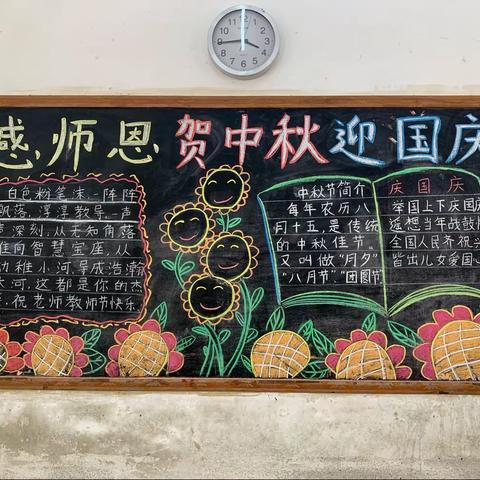 感师恩 贺中秋 迎国庆
白色粉笔沫一阵阵
飘落,谆谆教导一声
声深刻,从无知角落
走向智慧宝座,从
幼稚小河导成浩瀚
大河,这都是你的杰
,祝老师教师节快乐
中秋节简介
每年农历八
月十五,是传统
的中秋佳节。
又叫做“月夕”
“八月节”“团圆节
庆国庆
举国上下庆国庆
遥想当年战鼓
全国人民齐祝
皆出儿女爱国心